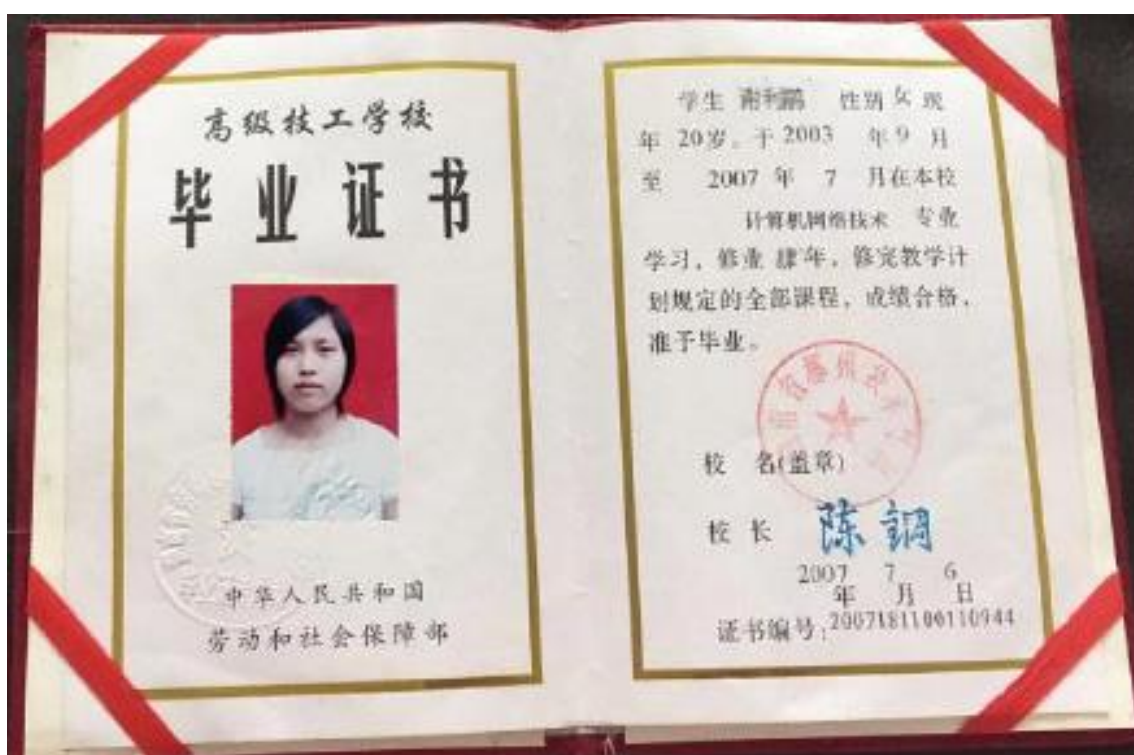 高级技工学校
毕业证书
中华人民共和国
劳动和社会保障部
学生 性别 女 现
年 20岁。于 2003 年 9 月
至 2007 年 7 月在本校
计算机网络技术 专业
学习，修业 肆年，修完教学计
划规定的全部课程，成绩合格，
准予毕业。
校 名(盖章)
校 长 陈
2007 7 6
年 月 日
证书编号:2007181100110944